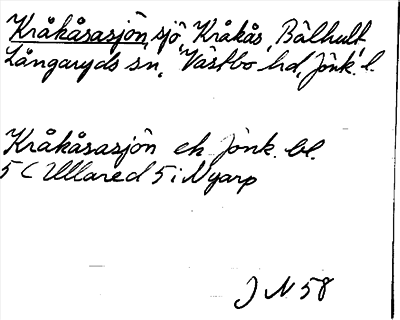 Kråkåsasjön, sjö, Kråkås, Bälhult,
Långaryds sn, Västbo hd, Jönk. l.
Kråkåsasjön ek Jönk. bl.
5 C Ullared 5 i Nyarp
J N 58